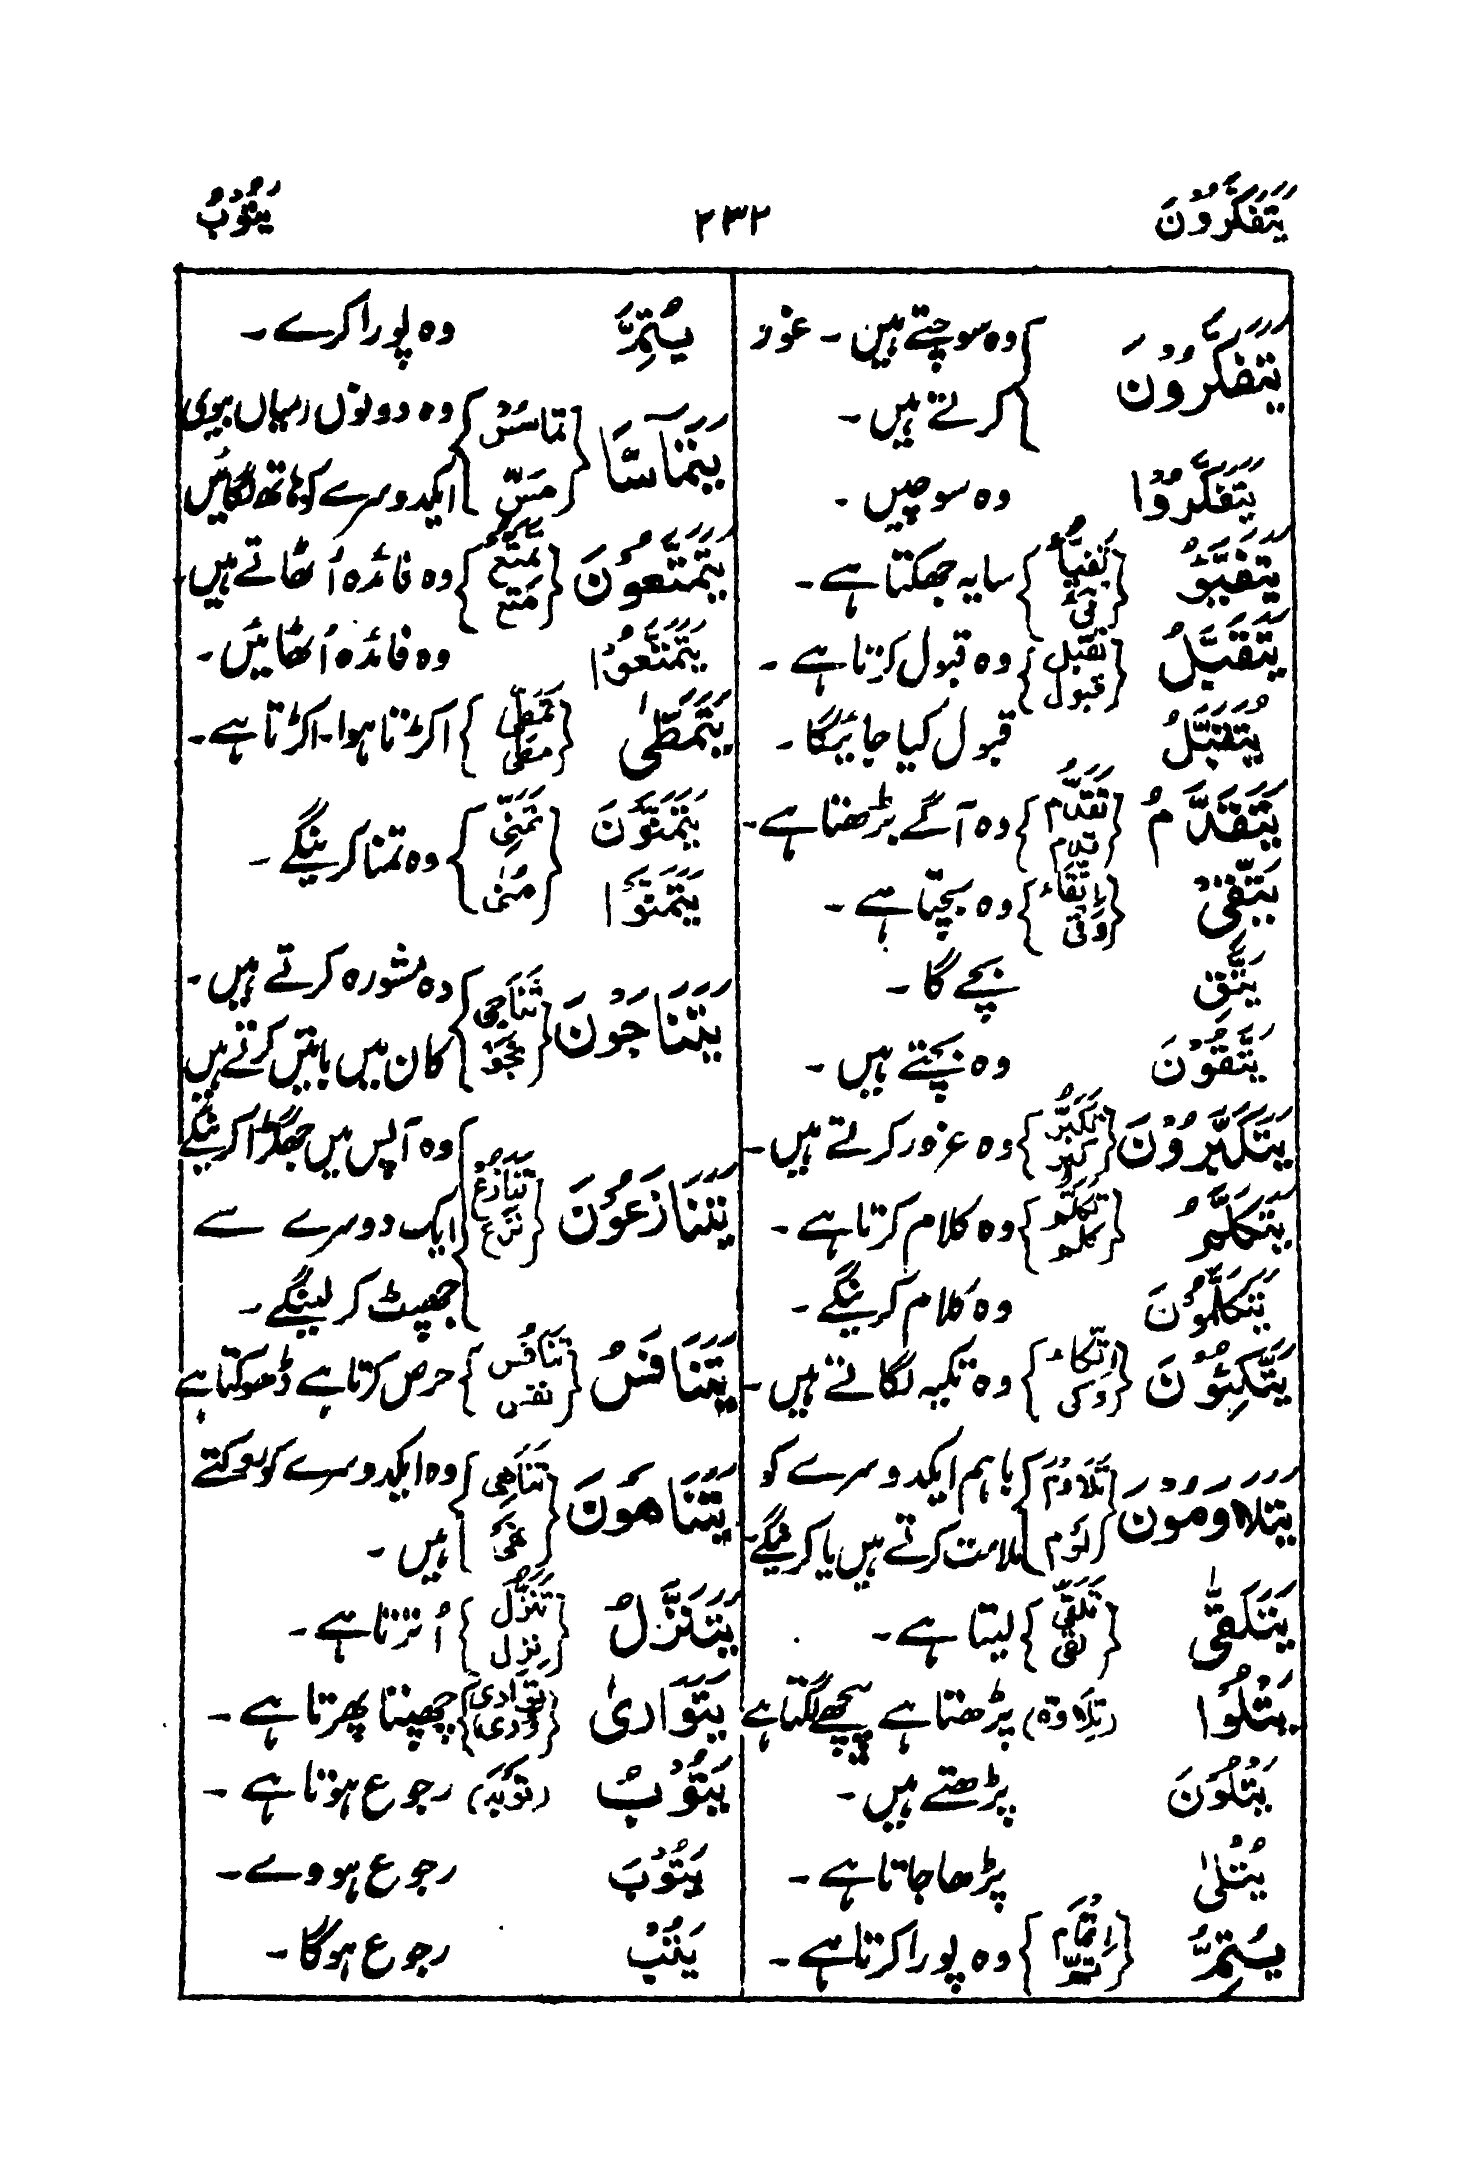 يَتَفَكَّرُوْنَ ۲۳۲ يَتُوْبُ
يَتَفَكَّرُوْنَ { وہ سوچتے ہیں ۔ غور
کرتے ہیں ۔
يَتَفَكَّرُوْا وہ سوچیں ۔
يَتَفَيَّؤُ { تَفَيُّأ فَىْء } سایہ جھکتا ہے ۔
يَتَقَبَّلُ { تَقَبُّل قبول } وہ قبول کرتا ہے ۔
يُتَقَبَّلُ قبول کیا جائیگا ۔
يَتَقَدَّمُ { تَقَدُّم قدم } وہ آگے بڑھتا ہے ۔
يَتَّقِىْ { اِتِّقَاء وَقى } وہ بچتا ہے ۔
يَتَّقِ بچے گا ۔
يَتَّقُوْنَ وہ بچتے ہیں ۔
يَتَكَبَّرُوْنَ { تَكَبُّر كبر } وہ غرور کرتے ہیں ۔
يَتَكَلَّمُ { تَكَلُّم كلم } وہ کلام کرتا ہے ۔
يَتَكَلَّمُوْنَ وہ کلام کرینگے ۔
يَتَّكِئُوْنَ { اِتِّكاء وكى } وہ تکیہ لگاتے ہیں ۔
يَتَلَاوَمُوْنَ { تَلَاوُم لَوْم } باہم ایکدوسرے کو
ملامت کرتے ہیں یا کرینگے ۔
يَتَلَقّٰى { تَلَقِّى لقى } لیتا ہے ۔
يَتْلُوْا (تِلَاوة) پڑھتا ہے پیچھے لگتا ہے
يَتْلُوْنَ پڑھتے ہیں ۔
يُتْلٰى پڑھا جاتا ہے ۔
يُتِمُّ { اِتْمَام تمّ } وہ پورا کرتا ہے ۔
يُتِمَّ وہ پورا کرے ۔
يَتَمَآسَّا { تماسّ مَسّ } وہ دونوں میاں بیوی
ایکدوسرے کو ہاتھ لگائیں
يَتَمَتَّعُوْنَ { تَمَتُّع مَتع } وہ فائدہ اُٹھاتے ہیں ۔
يَتَمَتَّعُوْا وہ فائدہ اُٹھائیں ۔
يَتَمَطّٰى { تَمَطِّى مطى } اکڑتا ہوا ۔ اکڑتا ہے ۔
يَتَمَنَّوْنَ
يَتَمَنَّوْا { تَمَنِّى مُنٰى } وہ تمنا کرینگے ۔
يَتَنَاجَوْنَ { تَنَاجِى نجو } وہ مشورہ کرتے ہیں ۔
کان میں باتیں کرتے ہیں
يَتَنَازَعُوْنَ { تَنَازُع نَزْع } وہ آپس میں جھگڑا کرینگے
ایک دوسرے سے
جھپٹ کر لینگے ۔
يَتَنَافَسُ { تَنَافُس نفس } حرص کرتا ہے ڈھوکتا ہے
يَتَنَاهَوْنَ { تَنَاهِى نهى } وہ ایکدوسرے کو روکتے
ہیں ۔
يَتَنَزَّلُ { تَنَزُّل نزل } اُترتا ہے ۔
يَتَوَارٰى { تَوَارِى وَرى } چھپتا پھرتا ہے ۔
يَتُوْبُ (توبَه) رجوع ہوتا ہے ۔
يَتُوْبَ رجوع ہووے ۔
يَتُبْ رجوع ہوگا ۔